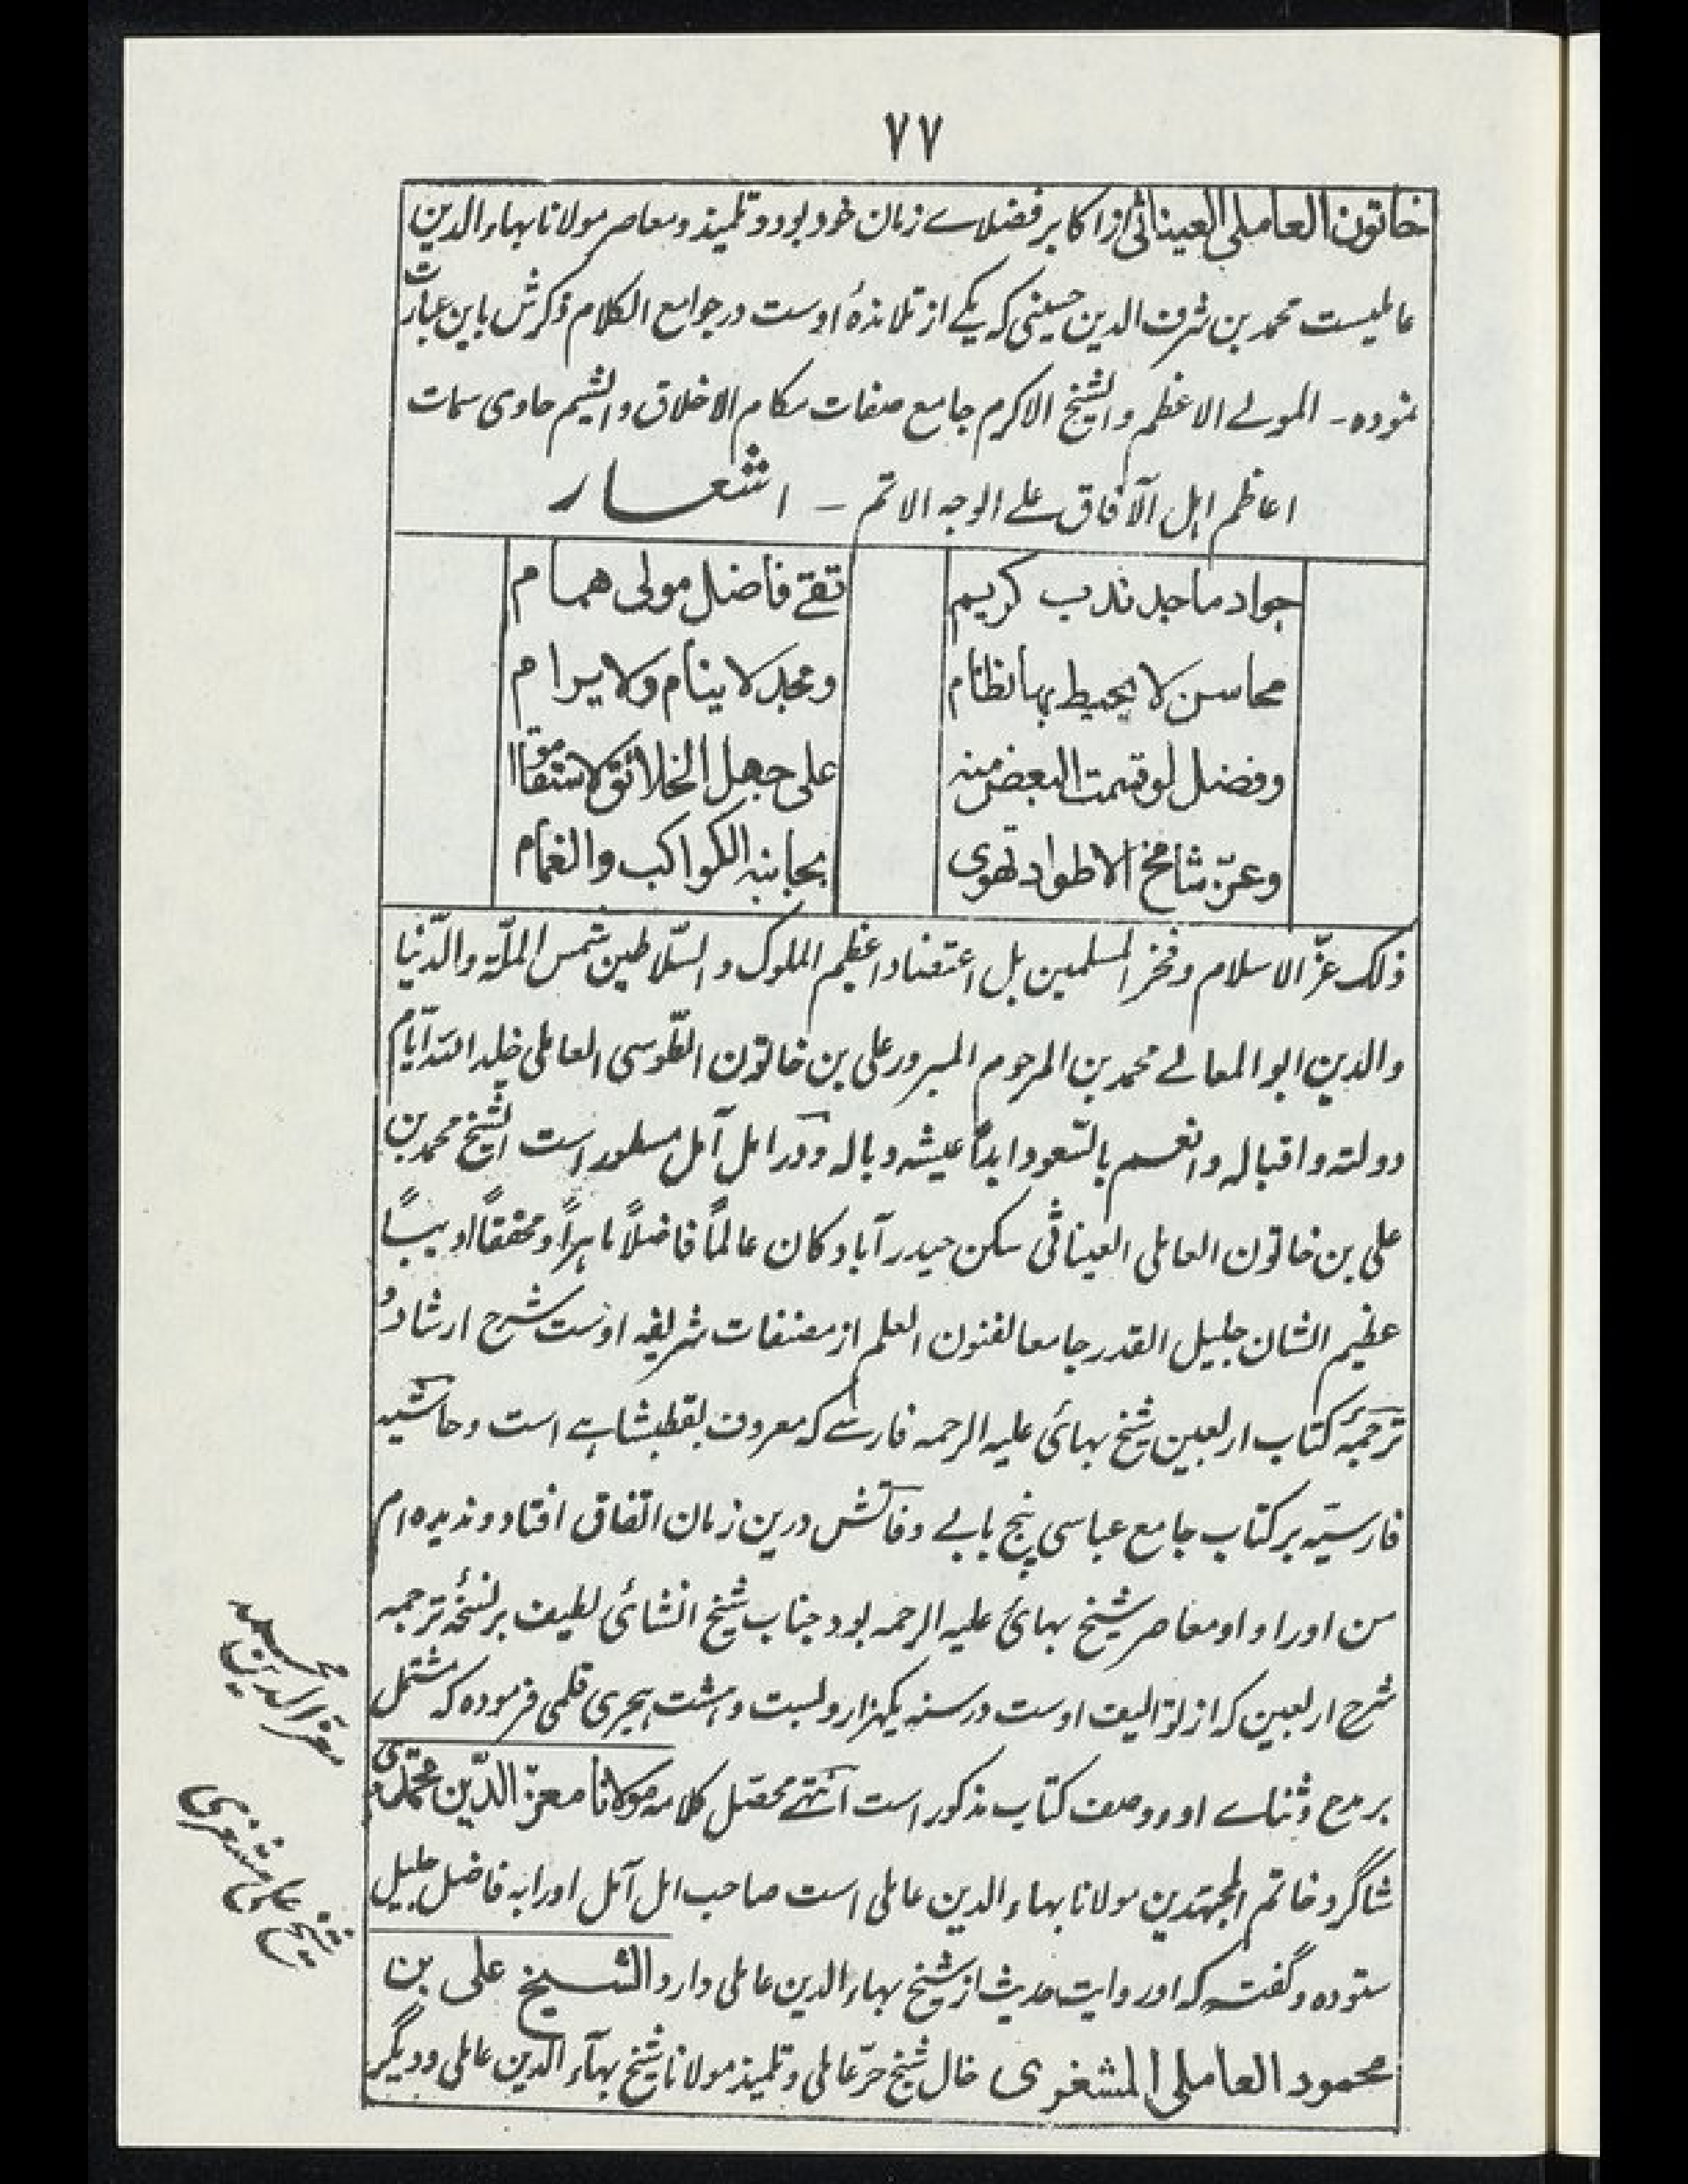 ٧٧
خاتون العاملی العیناثی از اکابر فضلاے زمان خود بود و تلمیذ و معاصر مولانا بہاء الدین
عاملیست محمد بن شرف الدین حسینی کہ یکے از تلامذۂ اوست در جوامع الکلام ذکرش باین عبارت
نمودہ۔ المولے الاعظم والشیخ الاکرم جامع صفات مکارم الاخلاق والشیم حاوی سمات
اعاظم اہل الآفاق علے الوجہ الاتم ۔ اشعار
جواد ماجد ندب کریم تقے فاضل مولی همام
محاسن لا یحیط بها نظام ومجد لا ینام ولا یرام
وفضل لو قسمت البعض منہ علی جهل الخلائق لاستقاموا
وعزّ شامخ الاطواد تهوی بجانبہ الکواکب والغمام
ذلک عزّ الاسلام و فخر المسلمین بل اعتضاد اعظم الملوک والسّلاطین شمس الملّۃ والدّنیا
والدین ابو المعالے محمد بن المرحوم المبرور علی بن خاتون الطّوسی العاملی خلد اللہ ایّام
دولتہ و اقبالہ و انعم بالسّعود ابداً عیشہ و بالہ و در امل آمل مسطور است الشیخ محمد بن
علی بن خاتون العاملی العیناثی سکن حیدر آباد کان عالماً فاضلاً ماہراً و محققاً ادیباً
عظیم الشان جلیل القدر جامعا لفنون العلم از مصنفات شریفہ اوست شرح ارشاد و
ترجمۂ کتاب اربعین شیخ بہائی علیہ الرحمہ فارسے کہ معروف بقطبشاہے است و حاشیہ
فارسیّہ بر کتاب جامع عباسی پنج بابے وفاتش درین زمان اتفاق افتاد و ندیدہ ام
من اورا و او معاصر شیخ بہائی علیہ الرحمہ بود جناب شیخ انشائی لطیف بر نسخۂ ترجمہ
شرح اربعین کہ از توالیف اوست در سنہ یکہزار و بست و ہشت ہجری قلمی فرمودہ کہ مشتمل
بر مدح و ثناے او و وصف کتاب مذکور است انتہے محصّل کلامہ مولانا معزّ الدّین محمّد
شاگرد خاتم المجتہدین مولانا بہاء الدین عاملی است صاحب امل آمل اورا بہ فاضل جلیل
ستودہ و گفتہ کہ او روایت حدیث از شیخ بہاء الدین عاملی دارد الشیخ علی بن
محمود العاملی المشغری خال شیخ حرّ عاملی و تلمیذ مولانا شیخ بہآء الدین عاملی و دیگر
محمد
معز الدین
شیخ علی مشغری